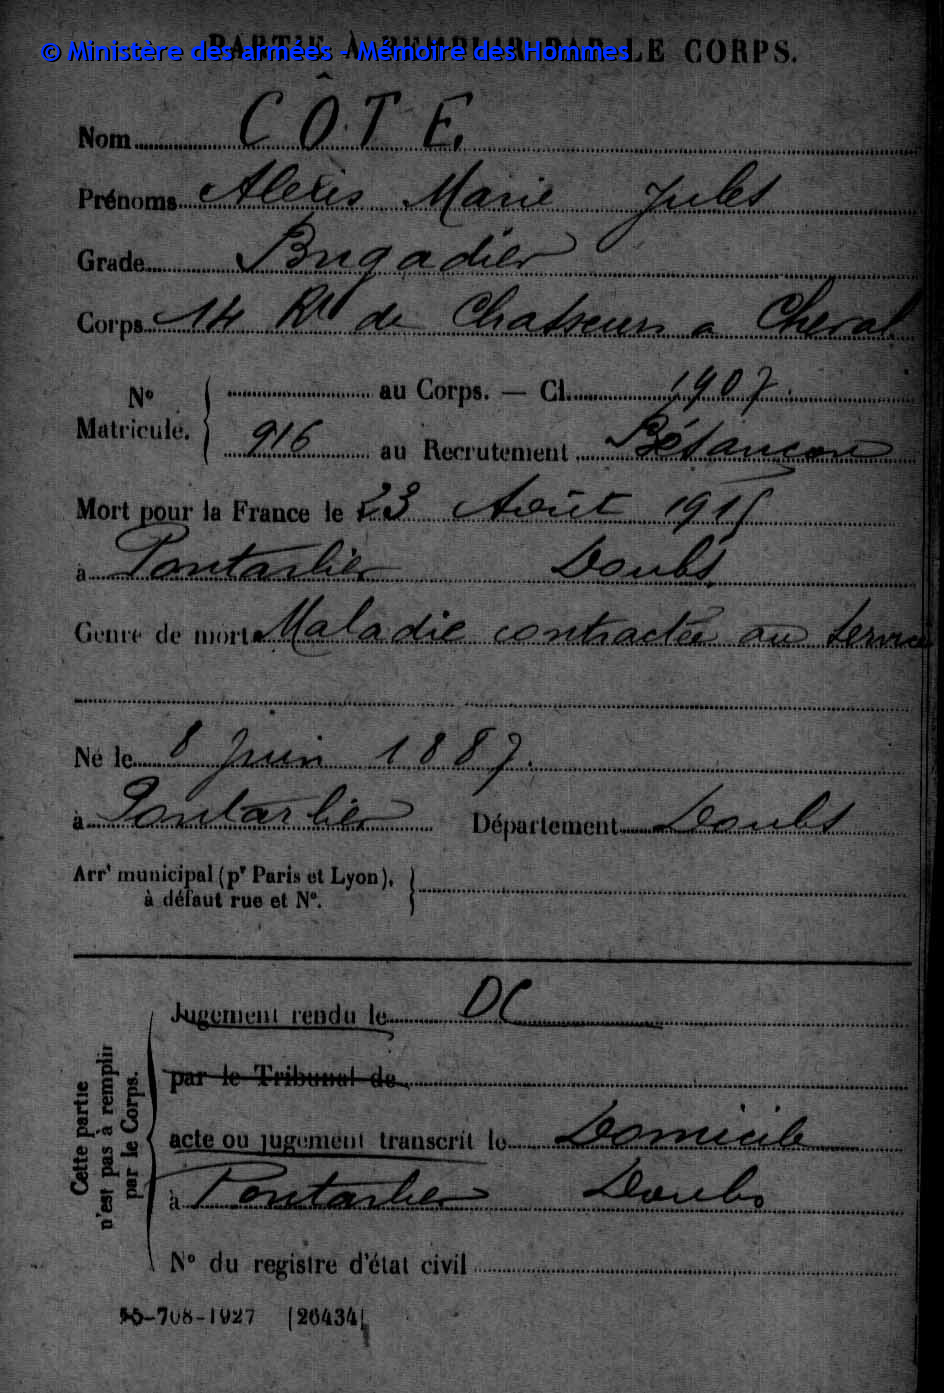 PARTIE À REMPLIR PAR LE CORPS.
© Ministère des armées - Mémoire des Hommes
Nom CÔTE.
Prénoms Alexis Marie Jules
Grade Brigadier
Corps 14 Rt de Chasseurs a Cheval
No Matricule. au Corps. — Cl. 1907.
916 au Recrutement Besançon
Mort pour la France le 23 Août 1915
à Pontarlier Doubs.
Genre de mort Maladie contractée au service
Né le 8 Juin 1887.
à Pontarlier Département Doubs
Arrt municipal (pr Paris et Lyon),
à défaut rue et No.
Cette partie
n'est pas à remplir
par le Corps.
Jugement rendu le DC
par le Tribunal de
acte ou jugement transcrit le Domicile
à Pontarlier Doubs
No du registre d'état civil
-708-1927 [26434]